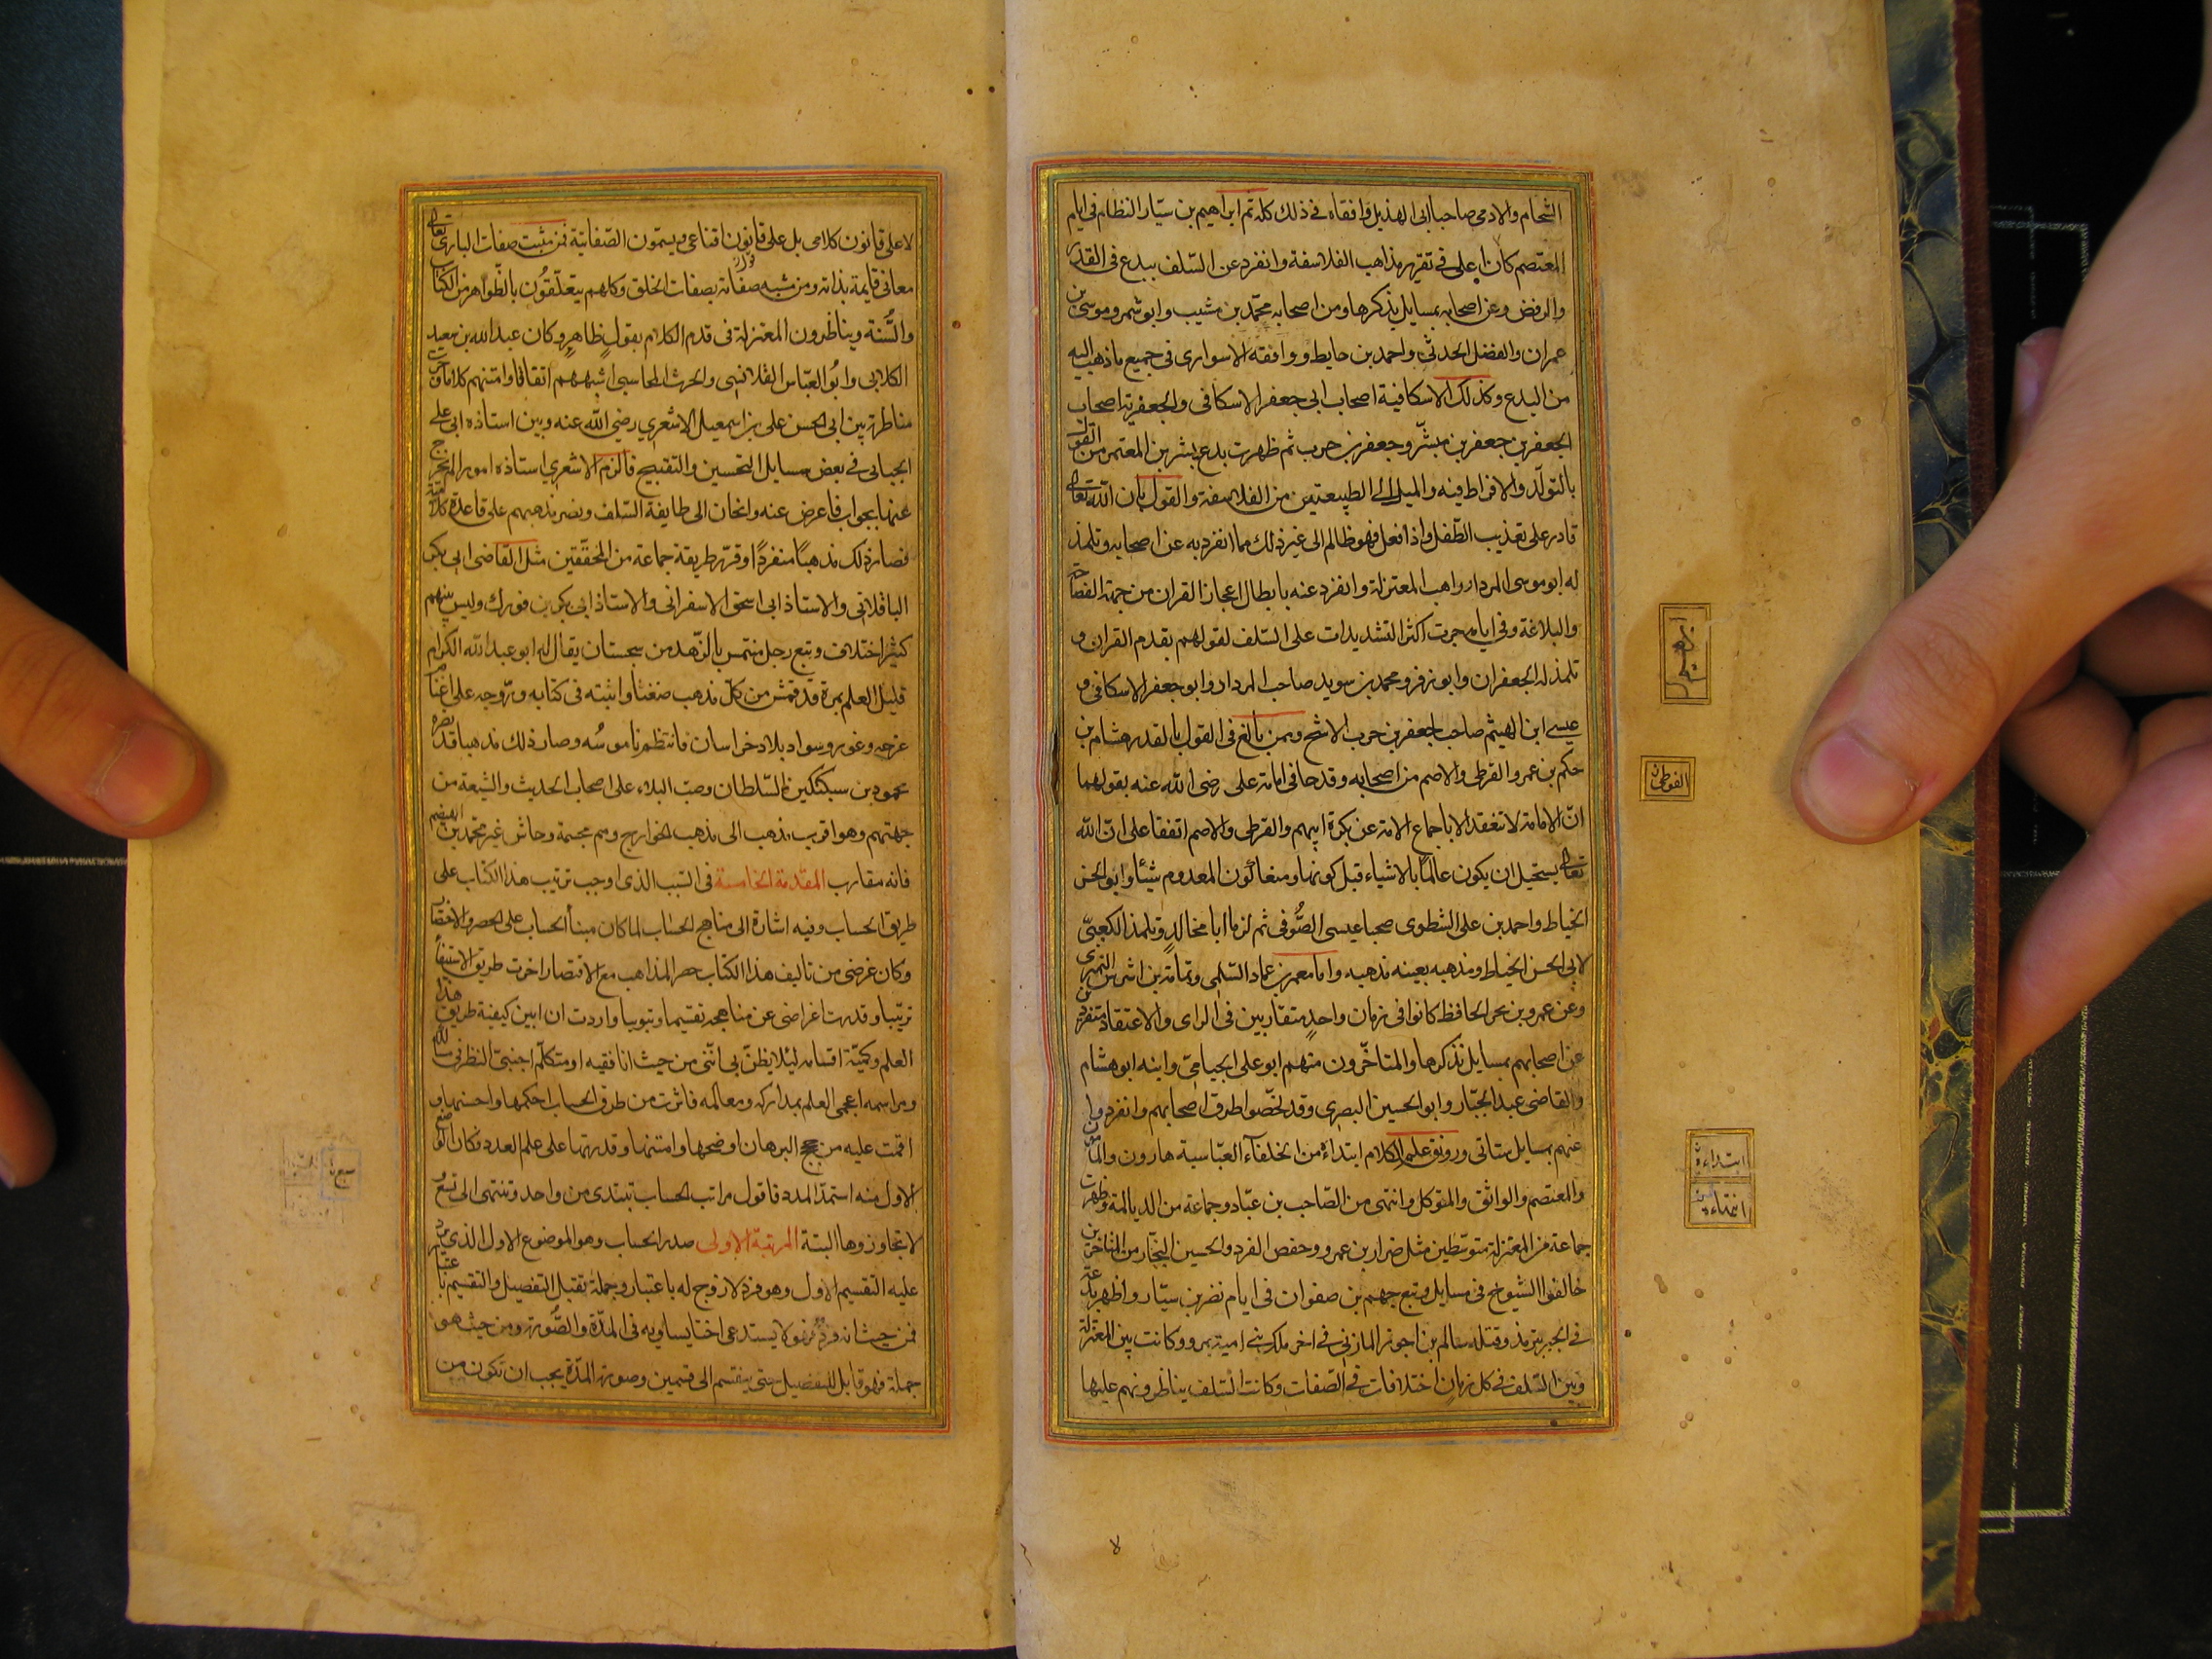 الشحام والادمى صاحبا ابى الهذيل وافقاه فى ذلك كله ثم ابراهيم بن سيار النظام فى ايام
المعتصم كان اعلى فى تقرير مذاهب الفلاسفة وانفرد عن السلف ببدع فى القدر
والرفض وعن اصحابه بمسايل نذكرها ومن اصحابه محمد بن شبيب وابو شمر وموسى بن
عمران والفضل الحدثى واحمد بن حايط ووافقه الاسوارى فى جميع ما ذهب اليه
من البدع وكذلك الاسكافية اصحاب ابى جعفر الاسكافى والجعفرية اصحاب
الجعفرين جعفر بن مبشر وجعفر بن حرب ثم ظهرت بدع بشر بن المعتمر من القول
بالتولد والافراط فيه والميل الى الطبيعتين من الفلاسفة والقول بان الله تعالى
قادر على تعذيب الطفل واذا فعل فهو ظالم الى غير ذلك مما انفرد به عن اصحابه وتلمذ
له ابو موسى المردار راهب المعتزلة وانفرد عنه بابطال اعجاز القران من جهة الفصاحة
والبلاغة وفى ايامه جرت اكثر التشديدات على السلف لقولهم بقدم القران و
تلمذ له الجعفران وابو زفر ومحمد بن سويد صاحب المردار وابو جعفر الاسكافى و
عيسى ابن الهيثم صاحب لجعفر بن حرب الاشج وممن بالغ فى القول بالقدر هشام بن
حكم بن عمرو القرطى والاصم من اصحابه وقدحا فى امامة على رضى الله عنه بقولهما
ان الامامة لا تنعقد الا باجماع الامة عن بكرة ابيهم والقرطى والاصم اتفقا على ان الله
تعالى يستحيل ان يكون عالما بالاشياء قبل كونها ومنعا كون المعدوم شيئا وابو الحسن
الخياط واحمد بن على الشطوى صحبا عيسى الصوفى ثم لزما ابا مخالد وتلمذ الكعبى
لابى الحسن الخياط ومذهبه بعينه مذهبه واما معمر بن عماد السلمى وثمامة بن اشرس النميرى
وعن عمرو بن بحر الحافظ كانوا فى زمان واحد متقاربين فى الراى والاعتقاد منفردين
عن اصحابهم بمسايل نذكرها والمتاخرون منهم ابو على الجبامى وابنه ابو هشام
والقاضى عبد الجبار وابو الحسين البصرى وقد لخصوا طرق اصحابهم وانفردوا
عنهم بمسايل ستاتى ورونق علم الكلام ابتداؤه من الخلفآء العباسية هارون والمامون
والمعتصم والواثق والمتوكل وانتهى من الصاحب بن عباد وجماعة من الديالمة وظهرت
جماعة من المعتزلة متوسطين مثل ضرار بن عمرو وحفص الفرد والحسين النجار من المتاخرين
خالفوا الشيوخ فى مسايل وتبع جهم بن صفوان فى ايام نضر بن سيار واظهر بدعته
فى الجبر بترمذ وقتله سالم بن اجوز المازنى فى اخر ملك بنى امية بمرو وكانت بين المعتزلة
وبين السلف فى كل زمان اختلافات فى الصفات وكانت السلف يناظرونهم عليها
ابراهيم
الفوطى
ابتداءه
انتهاءه
لا
لا على قانون كلامى بل على قانون اقناعى ويسمون الصفاتية فمن مثبت صفات البارى تعالى
معانى قايمة بذاته ومن مشبه صفاته بصفات الخلق وكلهم يتعلقون بالظواهر من الكتاب
والسنة ويناظرون المعتزلة فى قدم الكلام بقول ظاهر وكان عبد الله بن سعيد
الكلابى وابو العباس القلانسى والحرث المحاسبى اشبههم اتقانا وامتنهم كلاما وجرت
مناظرة بين ابى الحسن على بن اسمعيل الاشعرى رضى الله عنه وبين استاذه ابى على
الجبائى فى بعض مسايل التحسين والتقبيح فالزم الاشعرى استاذه امورا لم يخرج
عنها بجواب فاعرض عنه وانحاز الى طايفة السلف ونصر مذهبهم على قاعدة كلامية
فصار ذلك مذهبا منفردا وقرر طريقة جماعة من المحققين مثل القاضى ابى بكر
الباقلانى والاستاذ ابى اسحق الاسفرانى والاستاذ ابى بكر بن فورك وليس بينهم
كثير اختلاف وتبع رجل متنمس بالزهد من سجستان يقال له ابو عبد الله الكرام
قليل العلم بمرة قد قمش من كل مذهب ضغثا واثبته فى كتابه وروجه على اغتام
غرجه وغور وسواد بلاد خراسان فانتظم ناموسه وصار ذلك مذهبا قد نصره
محمود بن سبكتكين السلطان وصب البلاء على اصحاب الحديث والشيعة من
جهتهم وهو اقرب مذهب الى مذهب الخوارج وهم مجسمة وحاش غير محمد بن الهيصم
فانه مقارب المقدمة الخامسة فى السبب الذى اوجب ترتيب هذا الكتاب على
طريق الحساب وفيه اشارة الى مناهج الحساب لما كان مبنا الحساب على الحصر والاختصار
وكان غرضى من تاليف هذا الكتاب حصر المذاهب مع الاقتصار اخرت طريق الاستيفاء
ترتيبا وقدرت اغراضى عن مناهجه تقسيما وتبويبا واردت ان ابين كيفية طريق هذا
العلم وكمية اقسامه لئلا يظن بى اننى من حيث انا فقيه او متكلم اجنبى النظر فى مسالكه
ومراسمه اعجمى العلم بمداركه ومعالمه فاثرت من طرق الحساب احكمها واحسنها و
اقمت عليه من حجج البرهان اوضحها وامتنها وقدرتها على علم العدد وكان الواضع
الاول منه استمد المدد فاقول مراتب الحساب تبتدى من واحد وتنتهى الى سبع
لا تجاوزوها البتة المرتبة الاولى صدر الحساب وهو الموضوع الاول الذى يرد
عليه التقسيم الاول وهو فرد لا زوج له باعتبار وجملة تقبل التفصيل والتقسيم باعتبار
فمن حيث انه فرد فهو لا يستدعى اختا يساويه فى المدة والصورة ومن حيث هو
جملة فهو قابل للتفصيل حتى ينقسم الى قسمين وصورة المدة يجب ان تكون من